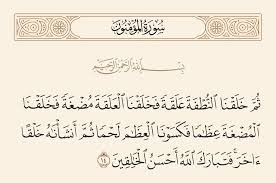 سُورَةُ الْمُؤْمِنُونَ
بِسْمِ اللَّهِ الرَّحْمَٰنِ الرَّحِيمِ
ثُمَّ خَلَقْنَا النُّطْفَةَ عَلَقَةً فَخَلَقْنَا الْعَلَقَةَ مُضْغَةً فَخَلَقْنَا
الْمُضْغَةَ عِظَٰمًا فَكَسَوْنَا الْعِظَٰمَ لَحْمًا ثُمَّ أَنشَأْنَٰهُ خَلْقًا
ءَاخَرَ ۚ فَتَبَارَكَ اللَّهُ أَحْسَنُ الْخَٰلِقِينَ ١٤